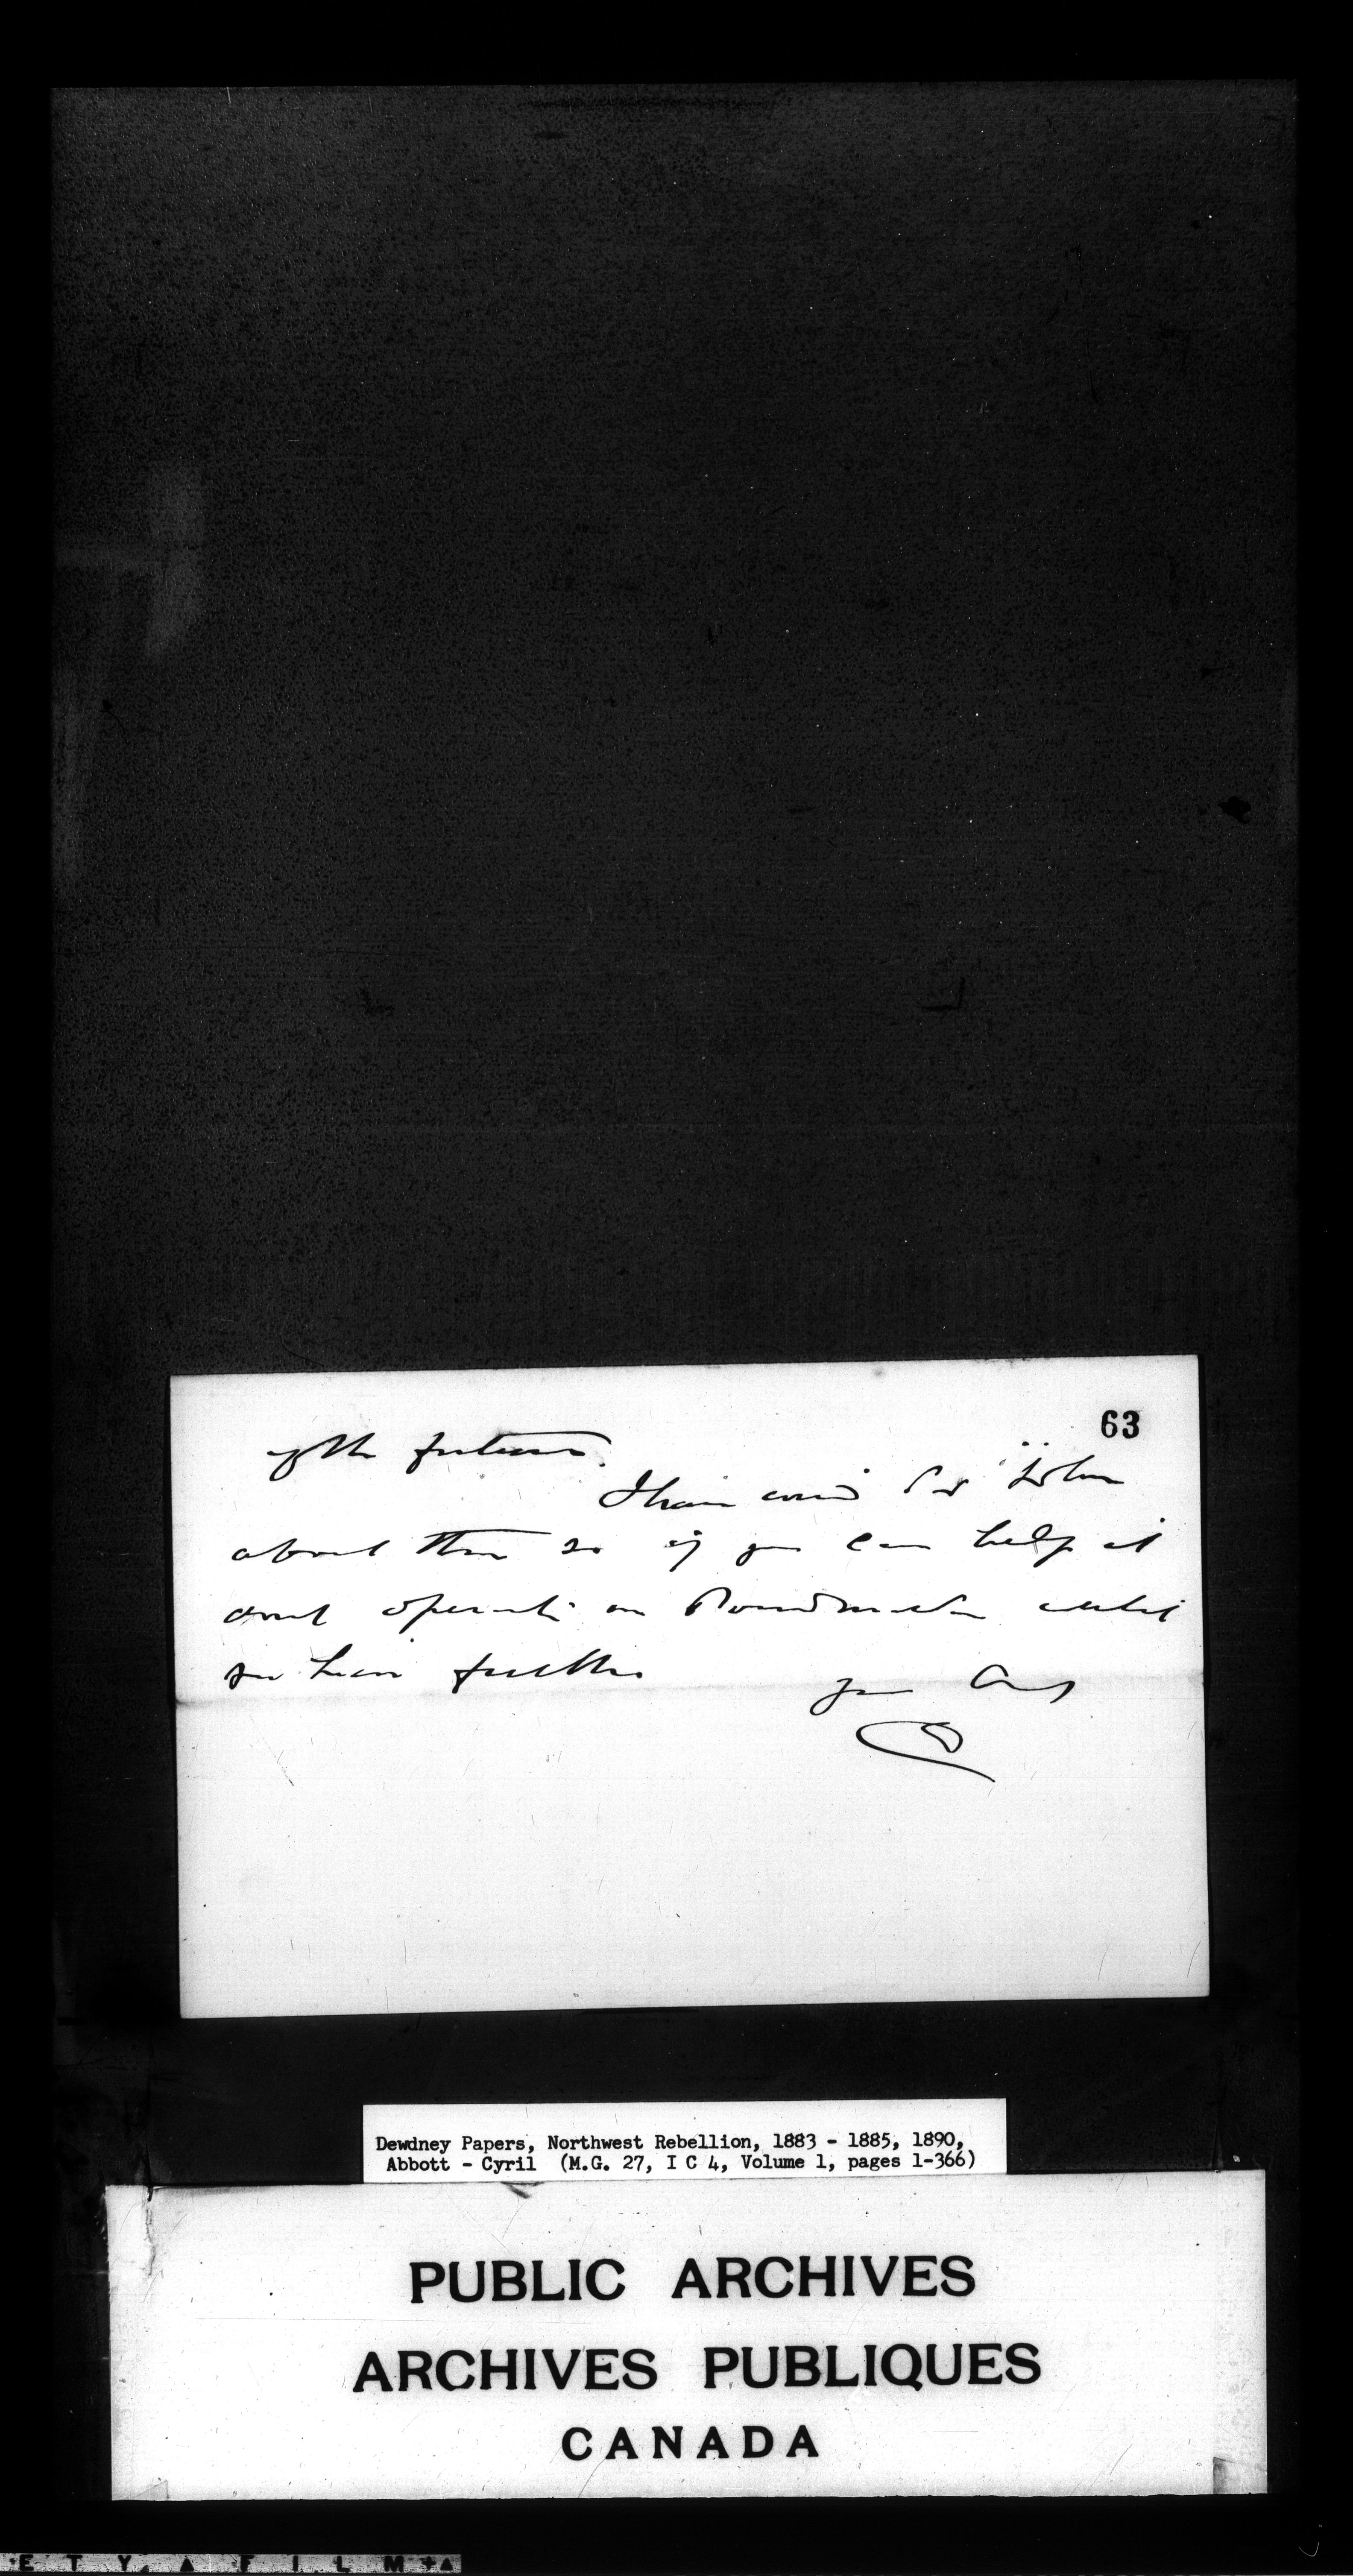 63
of the future.
I have wired Sir John
about this so if you can help it
dont operate on Poundmaker until
you hear further
yrs
Dewdney Papers, Northwest Rebellion, 1883 - 1885, 1890,
Abbott - Cyril (M.G. 27, I C 4, Volume 1, pages 1-366)
PUBLIC ARCHIVES
ARCHIVES PUBLIQUES
CANADA
E T Y ▲ F I L M